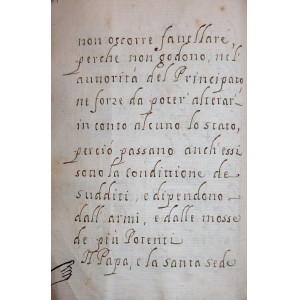 non occorre favellare,
perche non godono, nel
auttorità del Principato
ne forze da poter alterar
in conto alcuno lo stato,
perciò passano anch'essi
sotto la conditione de
sudditi, e dipendono
dall'armi, e dalle mosse
de più Potenti
Il Papa, e la Santa Sede